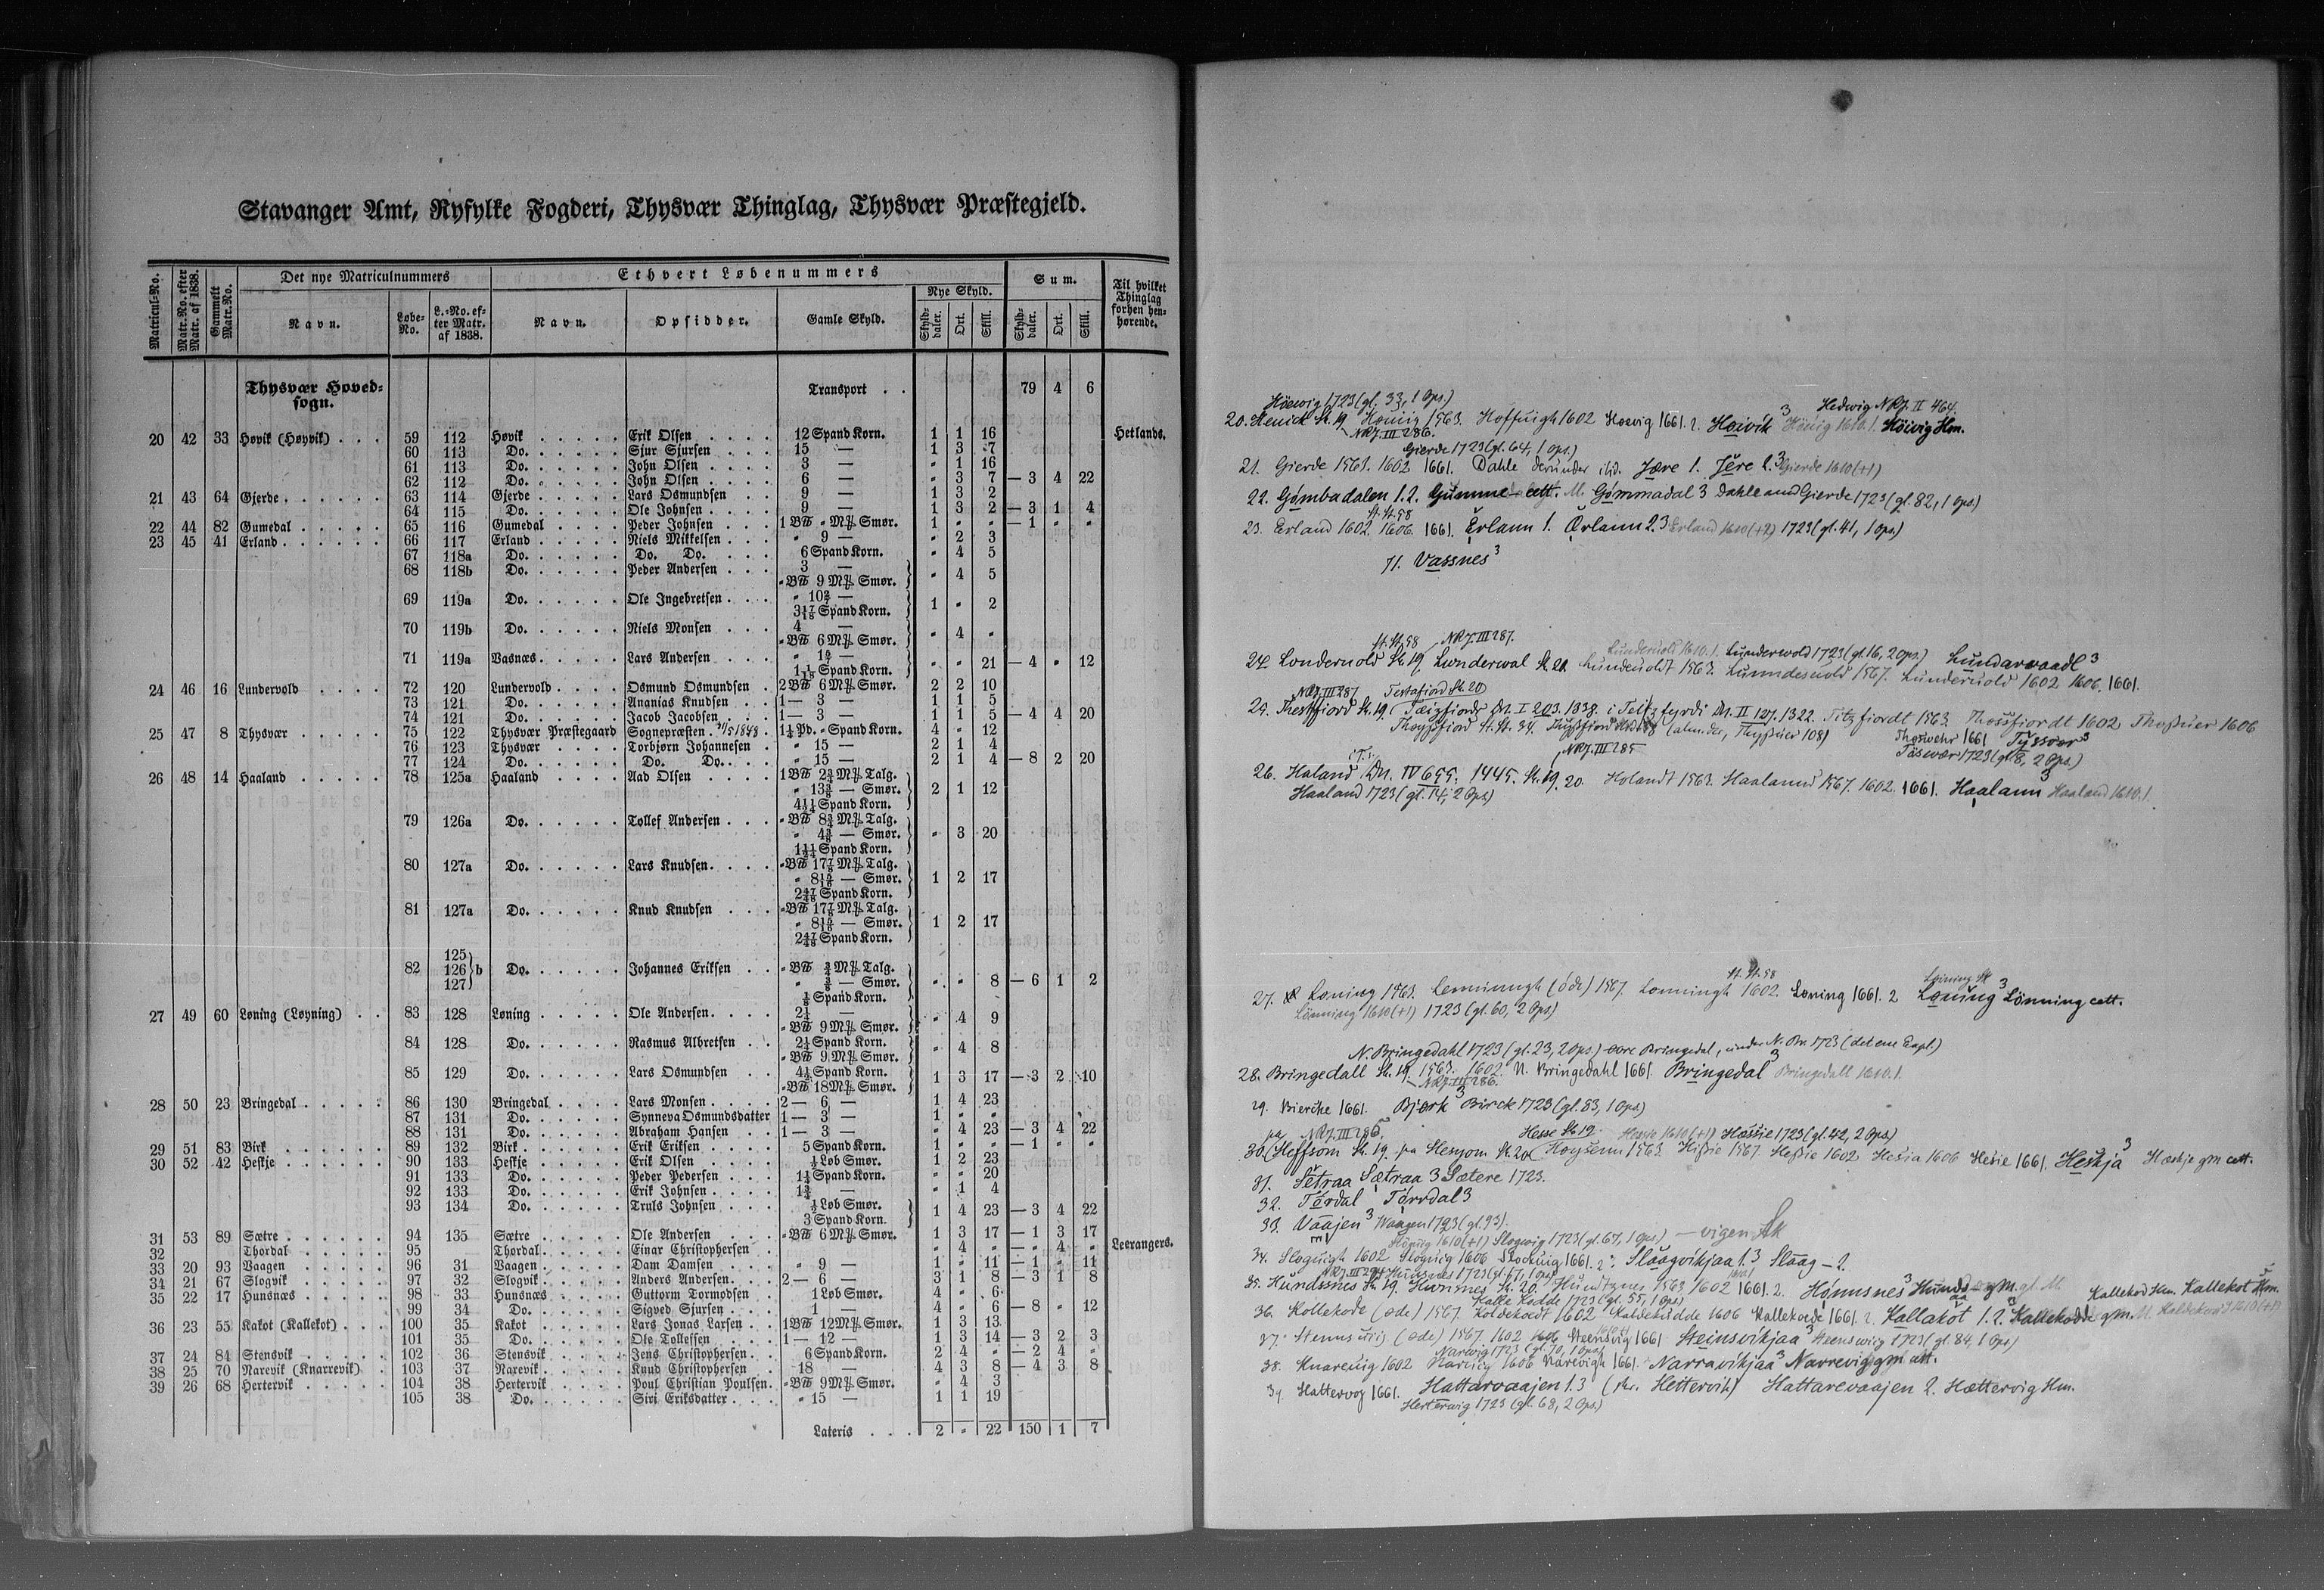 Stavanger Amt, Ryfylke Fogderi, Thysvær Thinglag, Thysvær Præstegjeld.
Matricul-No. | Matr.No. efter Matr. af 1838. | Gammelt Matr.No. | Det nye Matriculnummers | Ethvert Løbenummers | Sum. | Til hvilket Thinglag forhen henhørende.
Navn. | Løbe-No. | L.-No. efter Matr. af 1838. | Navn. | Opsidder. | Gamle Skyld. | Nye Skyld. | Skylddaler. | Ort. | Skill. | Skylddaler. | Ort. | Skill.
Thysvær Hovedsogn. Transport . . 79 4 6
20 42 33 Høvik (Høyvik) . . . 59 112 Høvik . . . . . Erik Olsen . . . . 12 Spand Korn. 1 1 16 Hetlands.
60 113 Do. . . . . . Sjur Sjursen . . . 15 — 1 3 7
61 113 Do. . . . . . John Olsen . . . . 3 — " 1 16
62 112 Do. . . . . . John Olsen . . . . 6 — " 3 7 — 3 4 22
21 43 64 Gjerde . . . . . . 63 114 Gjerde . . . . . Lars Osmundsen . . 9 — 1 3 2
64 115 Do. . . . . . Ole Johnsen . . . . 9 — 1 3 2 — 3 1 4
22 44 82 Gumedal . . . . . 65 116 Gumedal . . . . Peder Johnsen . . . 1 B℔ " M℔ Smør. 1 " " — 1 " "
23 45 41 Erland . . . . . . 66 117 Erland . . . . . Niels Mikkelsen . . . " 9 — " 2 3
67 118a Do. . . . . . Do. Do. . . . 6 Spand Korn. " 4 5
68 118b Do. . . . . . Peder Andersen . . . 3 —
" B℔ 9 M℔ Smør. " 4 5
69 119a Do. . . . . . Ole Ingebretsen . . . " 10 —
Spand Korn. 1 " 2
70 119b Do. . . . . . Niels Monsen . . . 4 —
" B℔ 6 M℔ Smør. " 4 "
71 119a Vasnæs . . . . . Lars Andersen . . . —
Spand Korn. " " 21 — 4 " 12
24 46 16 Lundervold . . . . 72 120 Lundervold . . . . Osmund Osmundsen . 2 B℔ 6 M℔ Smør. 2 2 10
73 121 Do. . . . . . Ananias Knudsen . . 1 — 3 — 1 1 5
74 121 Do. . . . . . Jacob Jacobsen . . . 1 — 3 — 1 1 5 — 4 4 20
25 47 8 Thysvær . . . . . 75 122 Thysvær Præstegaard Sognepræsten. 1848 . Pd. " Spand Korn. 4 " 12
76 123 Thysvær . . . . Torbjørn Johannesen . " 15 — 2 1 4
77 124 Do. . . . . . Do. Do. . . . " 15 — 2 1 4 — 8 2 20
26 48 14 Haaland . . . . . 78 125a Haaland . . . . Aad Olsen . . . . 1 B℔ M℔ Talg.
— Smør. 2 1 12
Spand Korn.
79 126a Do. . . . . . Tollef Andersen . . . " B℔ M℔ Talg.
— Smør. " 3 20
Spand Korn.
80 127a Do. . . . . . Lars Knudsen . . . . " B℔ M℔ Talg.
— Smør. 1 2 17
Spand Korn.
81 127a Do. . . . . . Knud Knudsen . . . " B℔ M℔ Talg.
— Smør. 1 2 17
Spand Korn.
125
82 126 b Do. . . . . . Johannes Eriksen . . " B℔ M℔ Talg.
127 — Smør. " " 8 — 6 1 2
Spand Korn.
27 49 60 Løning (Løyning) . . 83 128 Løning . . . . . Ole Andersen . . . . —
" B℔ 9 M℔ Smør. " 4 9
84 128 Do. . . . . . Rasmus Albretsen . . Spand Korn.
" B℔ 9 M℔ Smør. " 4 8
85 129 Do. . . . . . Lars Osmundsen . . Spand Korn.
" B℔ 18 M℔ Smør. 1 3 17 — 3 2 10
28 50 23 Bringedal . . . . . 86 130 Bringedal . . . . Lars Monsen . . . . 2 — 6 — 1 4 23
87 131 Do. . . . . . Synneva Osmundsdatter 1 — 3 — 1 " "
88 131 Do. . . . . . Abraham Hansen . . 1 — 3 — " 4 23 — 3 4 22
29 51 83 Birk . . . . . . 89 132 Birk . . . . . . Erik Eriksen . . . . 5 Spand Korn. 1 " " — 1 " "
30 52 42 Heskje . . . . . . 90 133 Heskje . . . . . Erik Olsen . . . . Løb Smør. 1 2 23
91 133 Do. . . . . . Peder Pedersen . . . Spand Korn. " " 20
92 133 Do. . . . . . Erik Johnsen . . . . — " 1 4
93 134 Do. . . . . . Truls Johnsen . . . Løb Smør.
3 Spand Korn. 1 4 23 — 3 4 22
31 53 89 Sætre . . . . . . 94 135 Sætre . . . . . Ole Andersen . . . " B℔ 6 M℔ Smør. 1 3 17 — 1 3 17
32 Thordal . . . . . 95 Thordal . . . . . Einar Christophersen . " 4 " — " 4 " Leerangers.
33 20 93 Vaagen . . . . . 96 31 Vaagen . . . . . Dam Damsen . . . " 9 — 1 " 11 — 1 " 11
34 21 67 Slogvik . . . . . 97 32 Slogvik . . . . . Anders Andersen . . . 2 — 6 — 3 1 8 — 3 1 8
35 22 17 Hunsnæs . . . . . 98 33 Hunsnæs . . . . Guttorm Tormodsen . . 1 Løb Smør. 4 " 6
99 34 Do. . . . . . Sigved Sjursen . . . 1 — 4 " 6 — 8 " 12
36 23 55 Kakot (Kallekot) . . . 100 35 Kakot . . . . . Lars Jonas Larsen . . 1 B℔ 12 M℔ Smør. 1 3 13
101 35 Do. . . . . . Ole Tollefsen . . . 1 — 12 — 1 3 14 — 3 2 3
37 24 84 Stensvik . . . . . 102 36 Stensvik . . . . Jens Christophersen . . 6 Spand Korn. 2 4 " — 2 4 "
38 25 70 Narevik (Knarrevik) . 103 37 Narevik . . . . . Knud Christophersen . . 18 — 4 3 8 — 4 3 8
39 26 68 Hertervik . . . . . 104 38 Hertervik . . . . Poul Christian Poulsen. " B℔ 9 M℔ Smør. " 4 3
105 38 Do. . . . . . Siri Eriksdatter . . . " 15 — 1 1 19
Lateris . . . 2 " 22 150 1 7
Höewig 1723 (gl. 33, 1 Ops.) Hedwig NRJ. II 464.
20. Heuick St. 19. Houiig 1563. Hoffuigh 1602 Hoevig 1661. 2. Hoivik 3 Höuig 1610.1. Höivig Hm.
NRJ. III 286.
Gierde 1723 (gl. 64, 1 Ops.)
21. Gierde 1563. 1602 1661. Dahle derunder ibid. Jære 1. Jere 2. 3 Gierde 1610 (+1)
22. Gómbadalen 1.2. Gumme cett. M. Gómmadal 3 Dahle and Gierde 1723 (gl. 82, 1 Ops.)
St. St. 58
23. Erland 1602. 1606. 1661. Erlann 1. Örlann 2.3 Erland 1610 (+2) 1723 (gl. 41, 1 Ops.)
71. Vassnes 3
St. St. 58 NRJ. III 287. Lunderuold 1610.1. Lunderwold 1723 (gl. 16, 2 Ops.) Lundarvaadl 3
24. Londeruold St. 19. Lunderwal St. 20. Lundeuoldt 1563. Lunndesuold 1567. Lunderuold 1602 1606. 1661.
NRJ. III 287 Testafiord St. 20
25. Thestfiord St. 19. Dn. I 203. 1338. Dn. II 127. 1322. Titzfiordt 1563. Thossfiordt 1602 Thosuer 1606
Thoysfiord St. St. 34. Thoswehr 1661 Tyssvær 3
NRJ. III 285 Täswær 1723 (gl. 8, 2 Ops.)
26. Haland Dn. IV 655. 1445. St. 19. 20. Holandt 1563. Haalannd 1567. 1602. 1661. Haalann 3 Haaland 1610.1.
Haaland 1723 (gl. 14, 2 Ops.)
St. St. 58
27. Loning 1563. Lenninngh (öde) 1567. Lonningh 1602. Loning 1661. 2 Löning 3 Lönning cett.
Lönning 1610 (+1) 1723 (gl. 60, 2 Ops.)
N. Bringedahl 1723 (gl. 23, 2 Ops.) Bringedal, under N. Br. 1723
28. Bringedall St. 19. 1563. 1602. N. Bringedahl 1661. Bringedal 3 Bringedall 1610.1.
NRJ. III 286.
29. Bierche 1661. Bjerk 3 Birck 1723 (gl. 83, 1 Ops.)
NRJ. III 286. Hesse St. 19. Hæssie 1723 (gl. 42, 2 Ops.)
30. Heffsom St. 19. Hessie 1567. Hessie 1602 Hesia 1606 Hesie 1661. Heskja 3 Hæskje gm cett.
31. Setraa Sætraa 3 Sætere 1723.
32. Tórdal Tórrdal 3
33. Vaajen 3 Waagen 1723 (gl. 93). —vigen
Slouig 1610 (+1) Slogwig 1723 (gl. 67, 1 Ops.)
34. Sloguigh 1602 Slogwig 1606 Slockuig 1661. 2. Slaagvikjaa 1.3 Slaag — 2.
Hunsnes 1723 (gl. 17, 1 Ops.)
35. Hundssnes St. 19. Hunnnes St. 20. Hundtznes 1563 1602 1661. 2. Hónnsnes 3 Hunds gm. gl. M.
Kalle Kodde 1723 (gl. 55, 1 Ops.) Kallekod Hm. Kallekot Hm.
36. Kollekode (öde) 1567. Koldekoedt 1602 Kaldekudde 1606 Kallekoede 1661. 2. Kallakót 1.2. 3 Kallekodde gm.
37. Stennsuiig (öde) 1567. 1602 1606 Steensvig 1661 Steinsvikjaa 3 Steenswig 1723 (gl. 84, 1 Ops.)
Narwig 1723 (gl. 70, 1 Ops.)
38. Knareuig 1602 Naruig 1606 Narevigh 1661. Narravikjaa 3 Narrevig gm cett.
39. Hattervog 1661. Hattarvaajen 1.3 (Hettervik) Hattarevaajen 2. Hættervig Hm.
Herterwig 1723 (gl. 68, 2 Ops.)